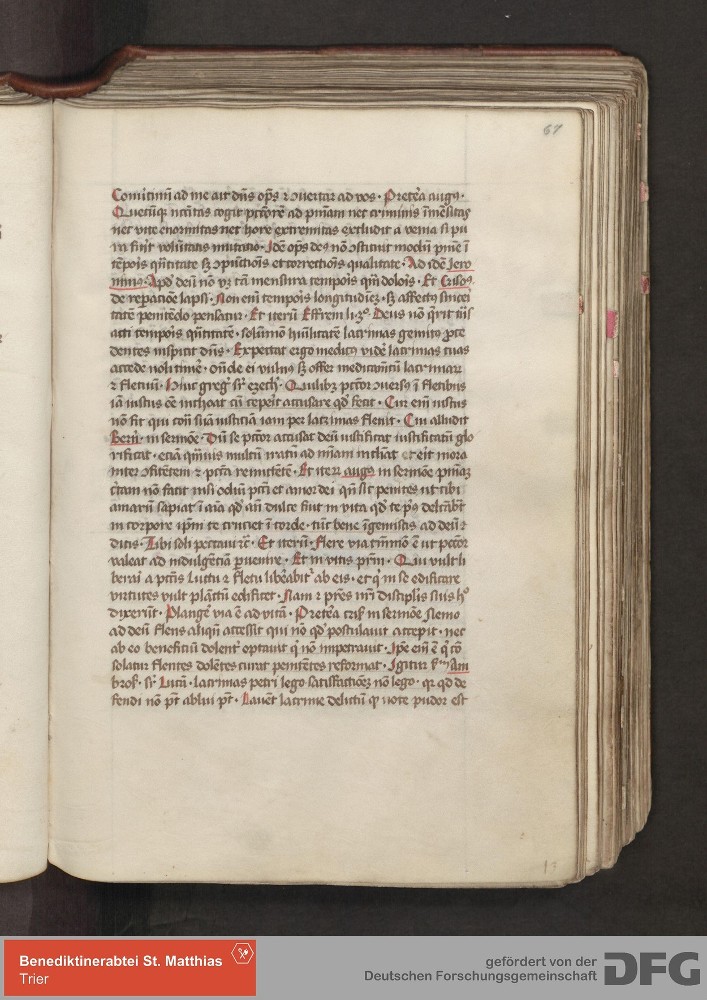 67
Conu̇timī ad me ait dn̄s op̄s ⁊ ↄuertar ad vos · Pret̄ea augꝰ ·
Quecūqꝫ nc̄itas cogit pctōrē ad pn̄iam nec criminis īmēsitas
nec vite enormitas nec hore extremitas excludit a venia si pu
ra fu̇it volūtatis mutatio · Idē op̄s deꝰ nō ↄstituit modū pn̄ie ī
tēpoīs qn̄titate sꝫ ↄpūctiōīs et correctiōīs qualitate · Ad idē Jero
nimꝰ · Apḋ deū nō vꝫ tā mensura tempoīs qm̄ doloīs · Et Crisoꝰ
de rep̄acōe lapsi · Non em̄ tempoīs longitudīeꝫ · sꝫ affectꝰ sincei
tate penitēcio pensatur · Et iterū Effrem
Deus nō q̄rit
acti tempoīs qn̄titatē · solūmō hūilitatē lacrimas gemitꝰ
dentes inspicit dn̄s · Expectat ergo medicꝰ videē lacrimas tuas
accede noli timeē · on̄de ei vulnꝰ sꝫ offer medicam̄tū lacrimarꝝ
⁊ fletuū · Hinc greg̾ sr̄ ezech̾ · Quilibꝫ pctōr ↄuersꝰ ī fletibus
iā iustus ēē inchoat cū ceperit accusare qḋ fecit · Cur em̄ iustus
nō sit qui contᷓ suā iusticiā iam per lacrimas seuit · Cui alludit
Berñ · in sermōē · Dū se pctōr accusat deū iustificat iustificatū glo
rificat · eciā quīuis multū iratū ad mīam inclīat et eijt mora
inter ↄfitētem ⁊ pctā remittētē · Et iterꝝ augꝰ in sermōē
nō facit nisi odiū pcti et amor dei qn̄ sic penites ut tibi
amarū sapiat ī aīa qḋ an̄ dulce fuit in vita qḋ te pꝰ delc̄abat
in corpore ip̄m te cruciet ī corde · tūc bene īgemiscis ad deū ⁊
dicis · Tibi soli peccaui ⁊c̄ · Et iterū · Flere via ē ut pctōr
valeat ad indulgēciā ꝑuenire · Et in vitis pr̄m · Qui vult li
berari a pctīs luctu ⁊ fletu lib̄eabit̾ ab eis · et q̇ in se edificare
virtutes vult plāctū edificet · Nam ⁊ pr̄es nr̄i discip̄lis suis hᵒ
dixerūt · Plangeē via ē ad vitā · Pret̄ea cris̾ in sermōē Nemo
ad deū flens aliqn̄ accessit qui nō qḋ postulauit accepit · nec
ab eo beneficiū dolent̾ optauit q̇ nō impetrauit · Ip̄e em̄ ē q̇ cō
solatur flentes dolētes curat penitētes reformat · Igitur Am
bros̾ · sr̄ Lucā · lacrimas petri lego satisfactiōeꝫ nō lego · qꝛ qḋ de
fendi nō pt̄ ablui pt̄ · Lauēt lacrime delictū qḋ uote pudor est
Benediktinerabtei St. Matthias
Trier
gefördert von der
Deutschen Forschungsgemeinschaft
DFG